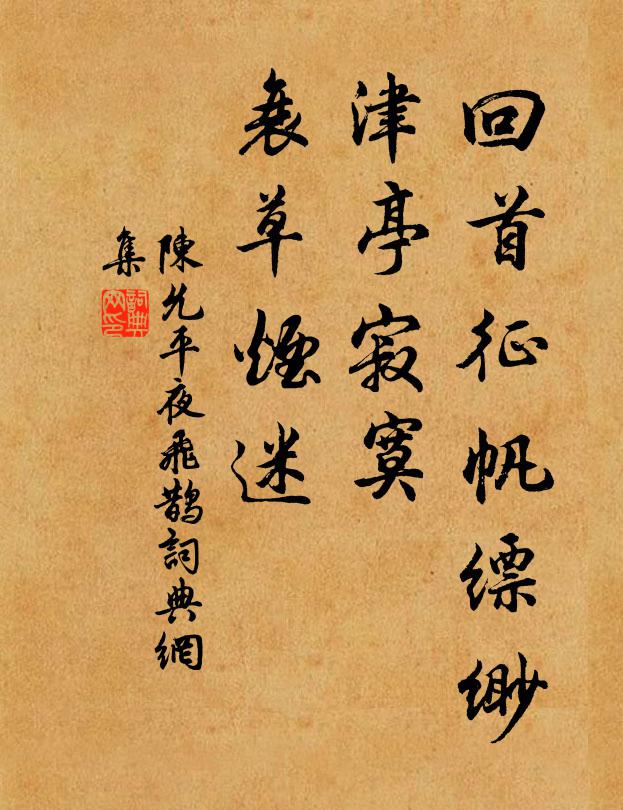 回首征帆缥缈
津亭寂寞
衰草煙迷
陳允平夜飛鵲詞典網
集
詞典网印